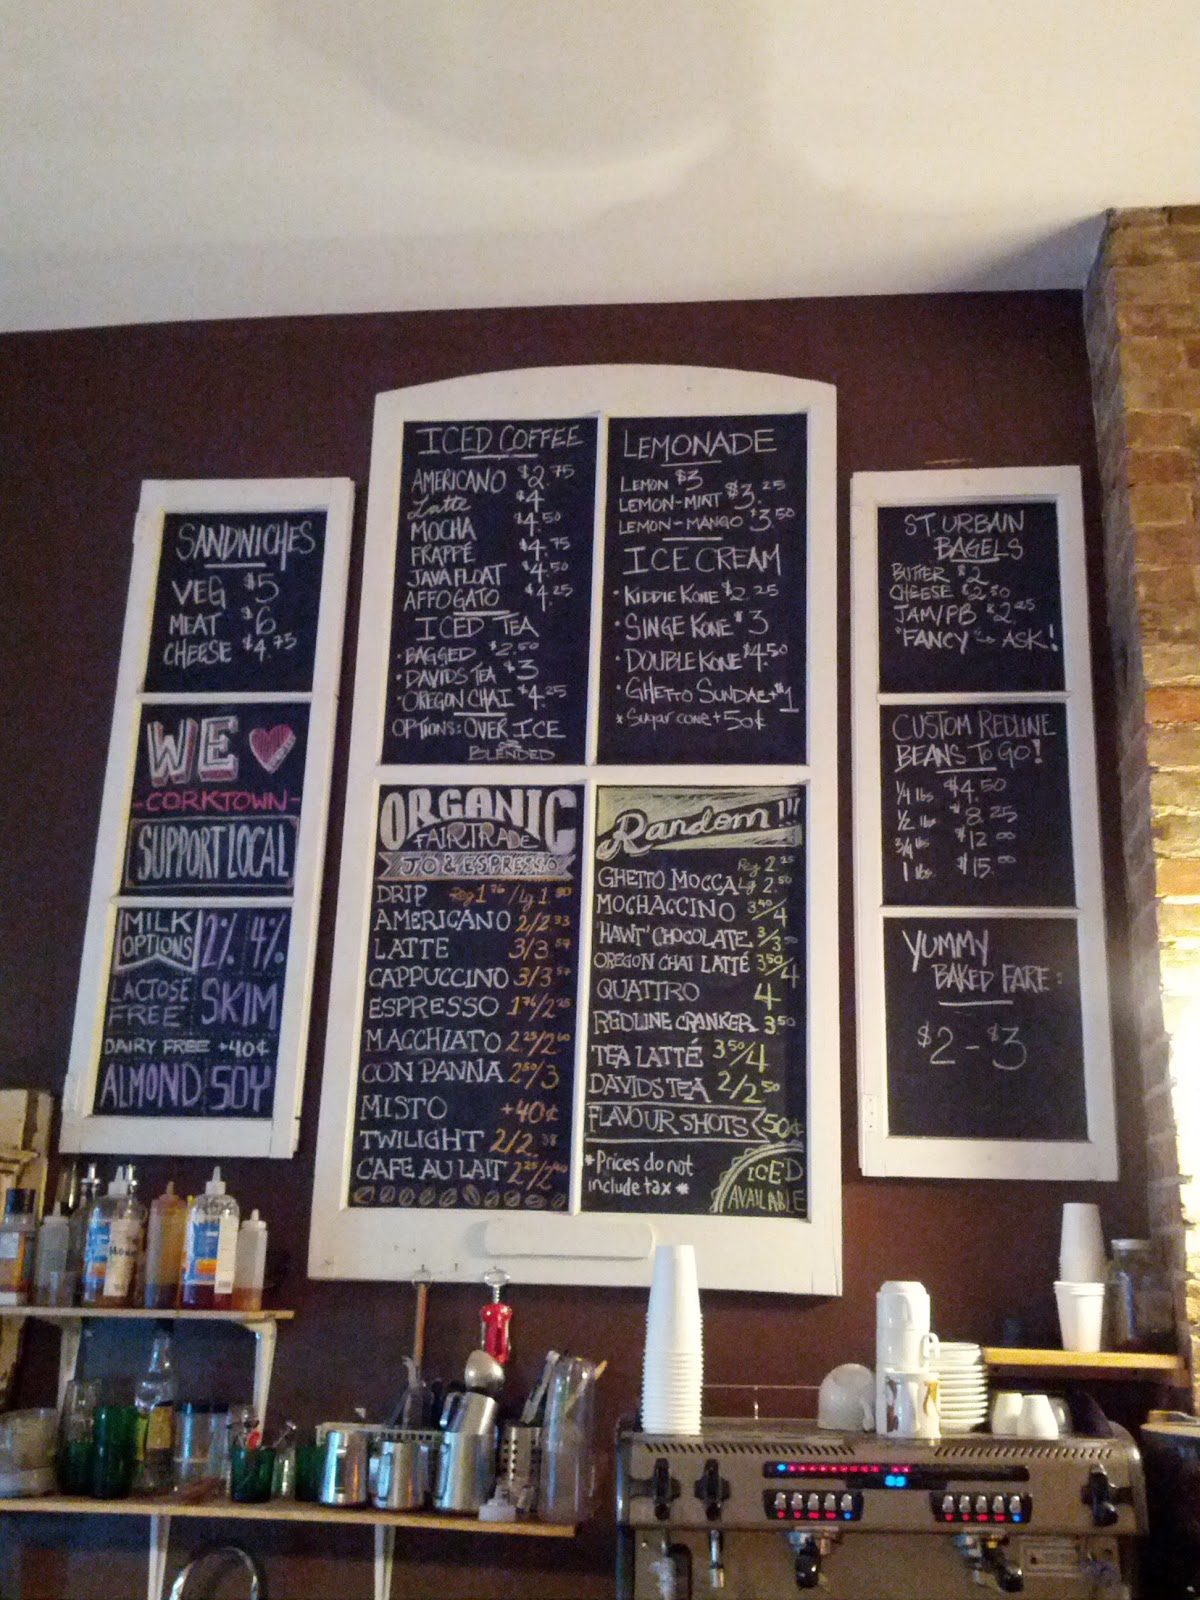 SANDWICHES
VEG $5
MEAT $6
CHEESE $4.75
WE ♥
-CORKTOWN-
SUPPORT LOCAL
MILK OPTIONS 2% 4%
LACTOSE FREE SKIM
DAIRY FREE +40¢
ALMOND SOY
ICED COFFEE
AMERICANO $2.75
Latte $4
MOCHA $4.50
FRAPPÉ $4.75
JAVA FLOAT $4.50
AFFOGATO $4.25
ICED TEA
• BAGGED $2.50
• DAVIDS TEA $3
• OREGON CHAI $4.25
OPTIONS: OVER ICE
OR
BLENDED
LEMONADE
LEMON $3
LEMON-MINT $3.25
LEMON-MANGO $3.50
ICE CREAM
• KIDDIE KONE $2.25
• SINGE KONE $3
• DOUBLE KONE $4.50
• GHETTO SUNDAE +$1
* Sugar cone + 50¢
ORGANIC
FAIRTRADE
JO & ESPRESSO
DRIP Reg 1.76 / Lg 1.90
AMERICANO 2/2.33
LATTE 3/3.57
CAPPUCCINO 3/3.57
ESPRESSO 1.76/2.25
MACCHIATO 2.25/2.60
CON PANNA 2.50/3
MISTO +40¢
TWILIGHT 2/2.38
CAFE AU LAIT 2.25/2.60
Random!!!
GHETTO MOCCA Reg 2.25 Lg 2.50
MOCHACCINO 3.40/4
'HAWT' CHOCOLATE 3/3.50
OREGON CHAI LATTÉ 3.50/4
QUATTRO 4
REDLINE CRANKER 3.50
TEA LATTÉ 3.50/4
DAVIDS TEA 2/2.50
FLAVOUR SHOTS 50¢
*Prices do not
include tax *
ICED
AVAILABLE
ST. URBAIN
BAGELS
BUTTER $2
CHEESE $2.50
JAM/PB $2.25
"FANCY" → ASK!
CUSTOM REDLINE
BEANS TO GO!
1/4 lbs $4.50
1/2 lbs $8.25
3/4 lbs $12.00
1 lbs. $15.00
YUMMY
BAKED FARE:
$2 - $3